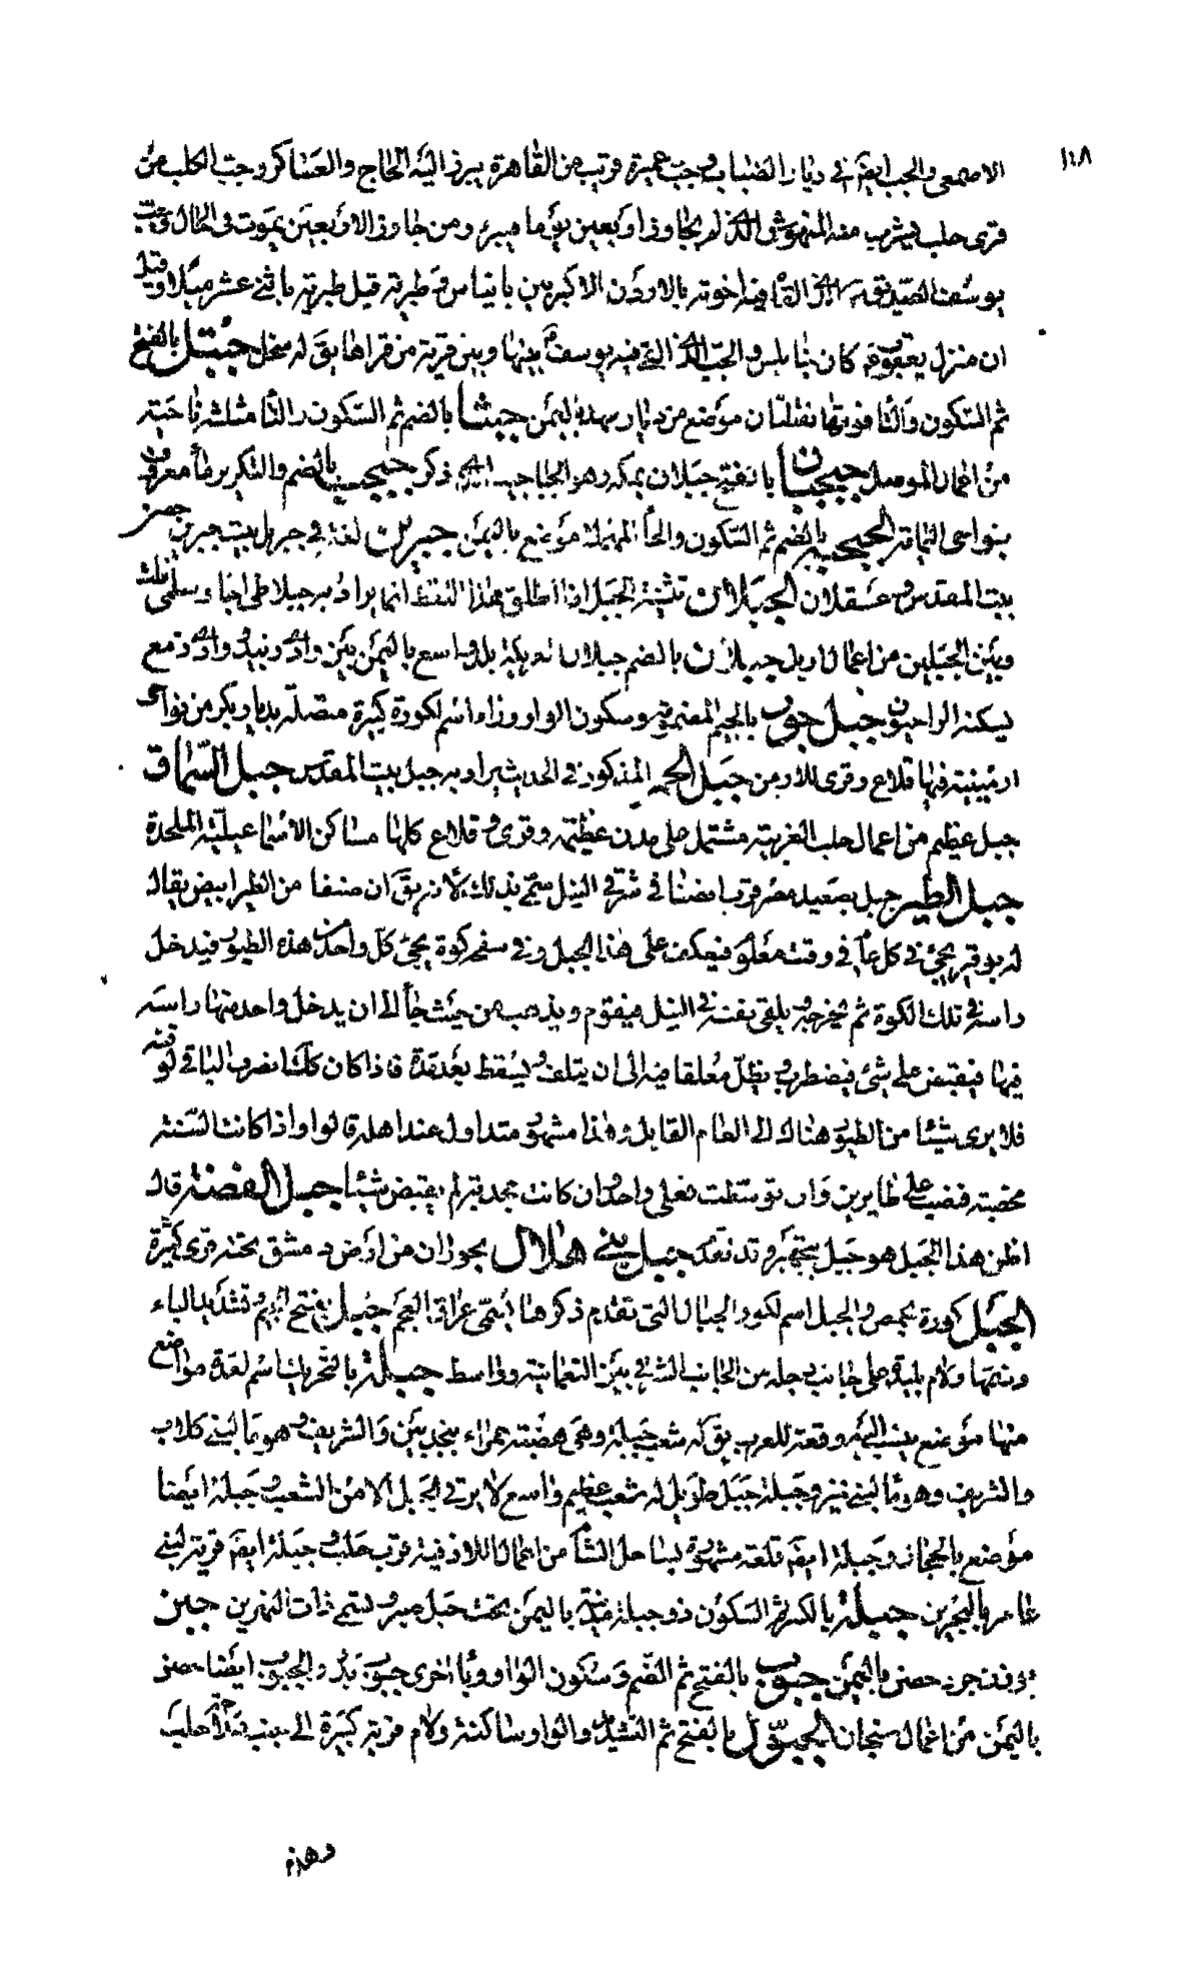 ١١٨
الاصمعي والجب ايضا في ديار الضباب وجب عميرة قريب من القاهرة يبرز اليه الحاج والعساكر وجب الكلب من
قرى حلب يشرب منه المنهوش الذي لم يجاوز اربعين يوما فيبرء ومن جاوز الاربعين يموت في الحال وجب
يوسف الصديق عم الذي القاه فيه اخوته بالاردن الاكبر بين بانياس وطبرية قبل طبرية باثنى عشر ميلا وقيل
ان منزل يعقوب كان بنابلس والجب الذي القي فيه يوسف بينها وبين قرية من قراها يق له سنجل جبتل بالفتح
ثم السكون والتا فوقها نقطتان موضع من ديار نهد باليمن جبثا بالضم ثم السكون والثا مثلثة ناحية
من اعمال الموصل جبجبان بالفتح جبلان بمكة وهو الجباجب الذي ذكر جبجب بالضم والتكرير ماء معروف
بنواحي اليمامة الجبجبية بالضم ثم السكون والحا المهملة موضع باليمن جبرين لغة في جبريل بيت جبرين حصن
بيت المقدس وعسقلان الجبلان تثنية الجبل اذا اطلق هذا اللفظ انما يراد به جبلا طي اجا وسلمى
وبين الجبلين من اعمال جبلان بالضم جبلان العركبة بلد واسع باليمن بين وادي زبيد ووادي رمع
يسكنه الراحبون جبل جور بالجيم المضمومة وسكون الواو وراء اسم لكورة كبيرة متصلة بديار بكر من نواحي
ارمينية فيها قلاع وقرى للارمن جبل الخمر المذكور في الحديث يراد به جبل بيت المقدس جبل السماق
جبل عظيم من اعمال حلب الغربية مشتمل على مدن عظيمة وقرى وقلاع كلها مساكن الاسماعيلية الملحدة
جبل الطير جبل بصعيد مصر قرب انصنا في شرقي النيل سمى بذلك لانه يق ان صنفا من الطير ابيض يقال
له بوقير يجئ في كل عام في وقت معلوم فيعكف على هذا الجبل وفي سفحه كوة يجئ كل واحد من هذه الطيور فيدخل
راسه في تلك الكوة ثم يخرجه ويلقي نفسه في النيل فيعوم ويذهب من حيث جا الى ان يدخل واحد منها راسه
فيها فيقبض عليه شئ فيضطرب ويظل معلقا فيه الى ان يتلف ويسقط بعد مدة فاذا كان ذلك انصرف الباقي لوقته
فلا يرى شيئا من الطيور هناك الى العام القابل وهذا مشهور متداول عند اهله قالوا واذا كانت السنة
مخصبة قبض على طايرين وان توسطت فعلى واحد وان كانت مجدبة لم يقبض شيئا جبل الفضة قال
اظن هذا الجبل هو جبل بنجهير وقد تقدم جبل بني هلال بحوران من ارض دمشق تحته قرى كثيرة
الجبل كورة بحمص والجبل اسم لكور الجبال التي تقدم ذكرها يسمى عراق العجم جبل بفتح الجيم وتشديد الباء
وضمها ولام بليدة على جانب دجله من الجانب الشرقي بين النعمانية وواسط جبلة بالتحريك اسم لعدة مواضع
منها موضع ينسب اليه وقعة للعرب يق له شعب جبلة وهي هضبة حمراء بنجد بين والشريف وهو ما لبني كلاب
والشريف وهو ما لبني نمير وجبلة جبل طويل له شعب عظيم واسع لا يرقى الجبل الا من الشعب وجبلة ايضا
موضع بالحجاز وجبلة ايضا قلعة مشهورة بساحل الشام من اعمال اللاذقية قرب حلب وجبلة ايضا قرية لبني
عامر بالبحرين جبلة بالكسر ثم السكون ذو جبلة مدينة باليمن تحت جبل صبر وتسمى ذات النهرين جبن
بوزن جرذ حصن باليمن جبوب بالفتح ثم الضم وسكون الواو وبا اخرى جبوب بدر والجبوب ايضا حصن
باليمن من اعمال سنحان الجبول بالفتح ثم التشديد والواو ساكنة ولام قرية كبيرة الى جنب ملاحة حلب
وهذه